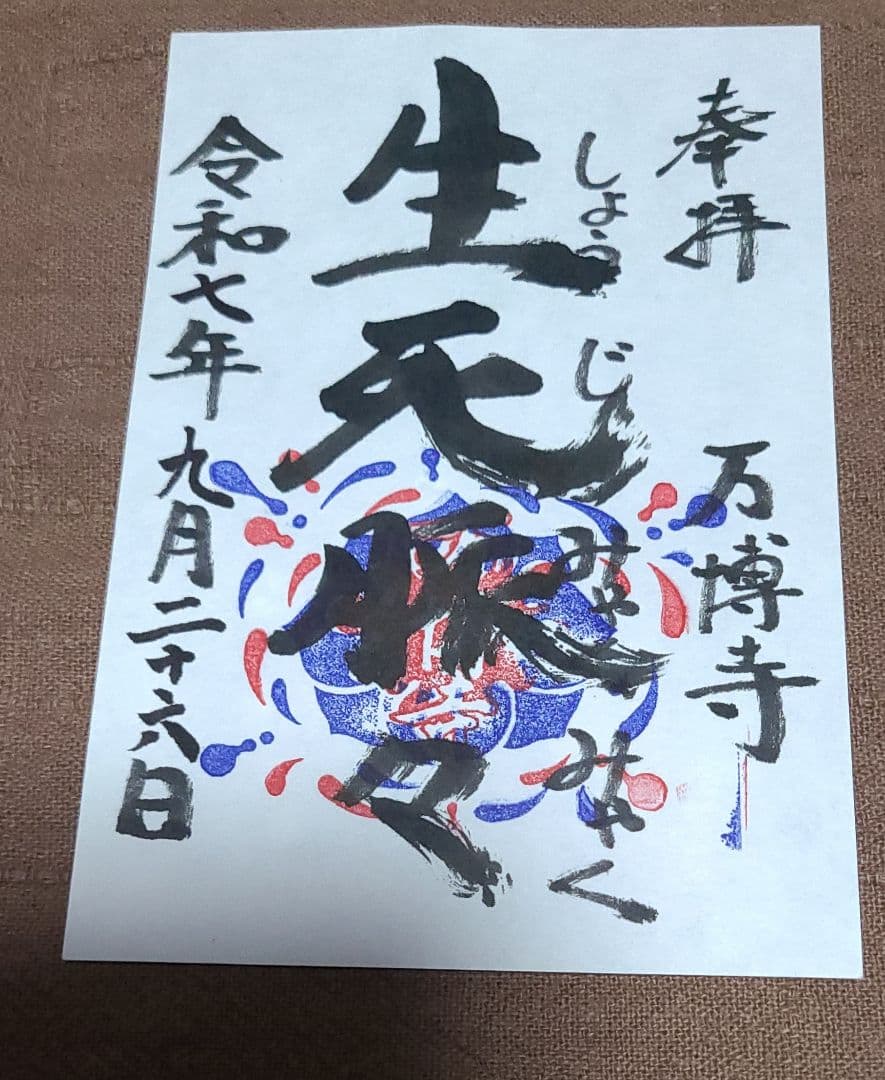 奉拝
万博寺
しょうじ みゃくみゃく
生死脈々
令和七年九月二十六日